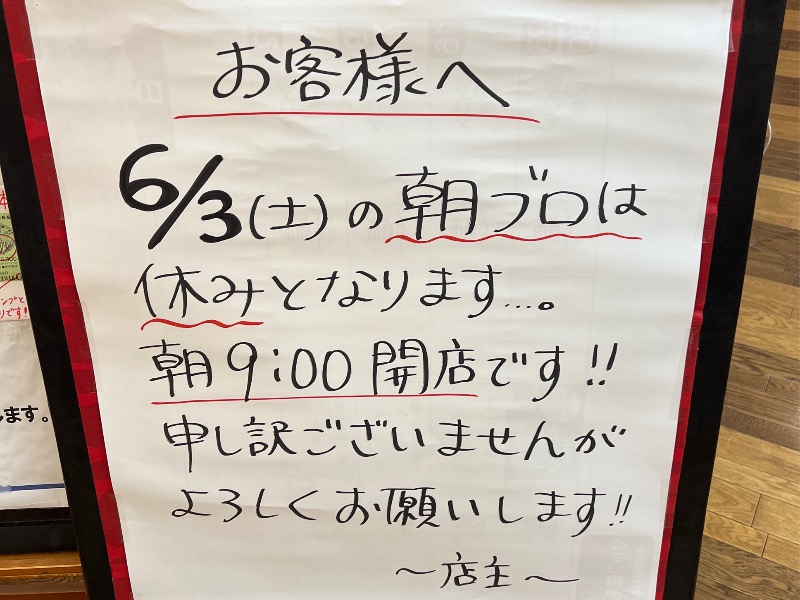 お客様へ
6/3(土)の朝ブロは
休みとなります…。
朝9:00開店です!!
申し訳ございませんが
よろしくお願いします!!
～店主～
します。